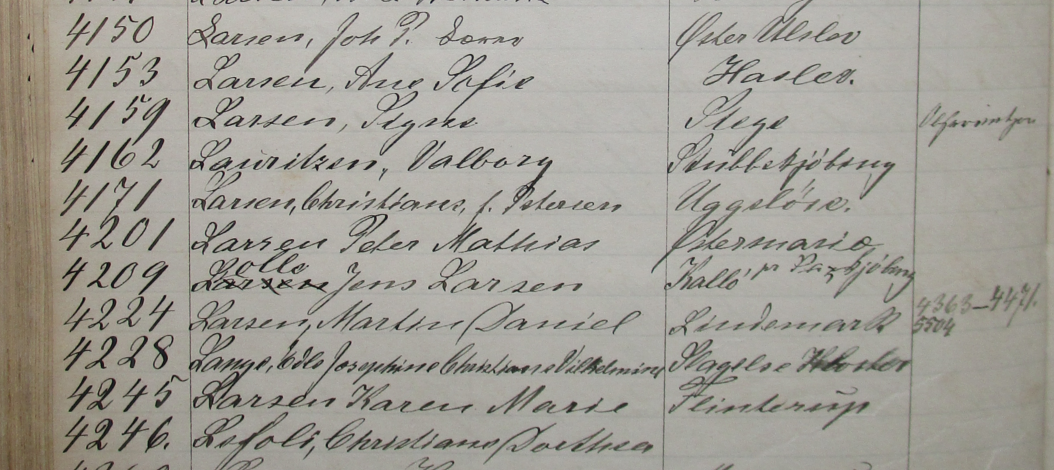 4150 Larsen, Joh P. Øster Ulslev
4153 Larsen, Ane Sofie Hasler.
4159 Larsen, Signe Stege
4162 Lauritzen, Valborg Stubbekjöbing
4171 Larsen, Christiane, f. Petersen Uggelöse.
4201 Larsen Peter Mathias Östermarie
4209 Larsen Jens Larsen Kallö pr
4224 Larsen, Martin Daniel Lindemark 4363-4471.
5504
4228 Lange, Josephine Christiane Vilhelmine Slagelse Kloster
4245 Larsen Karen Marie Flinterup
4246. Lefoli, Christiane Dorthea